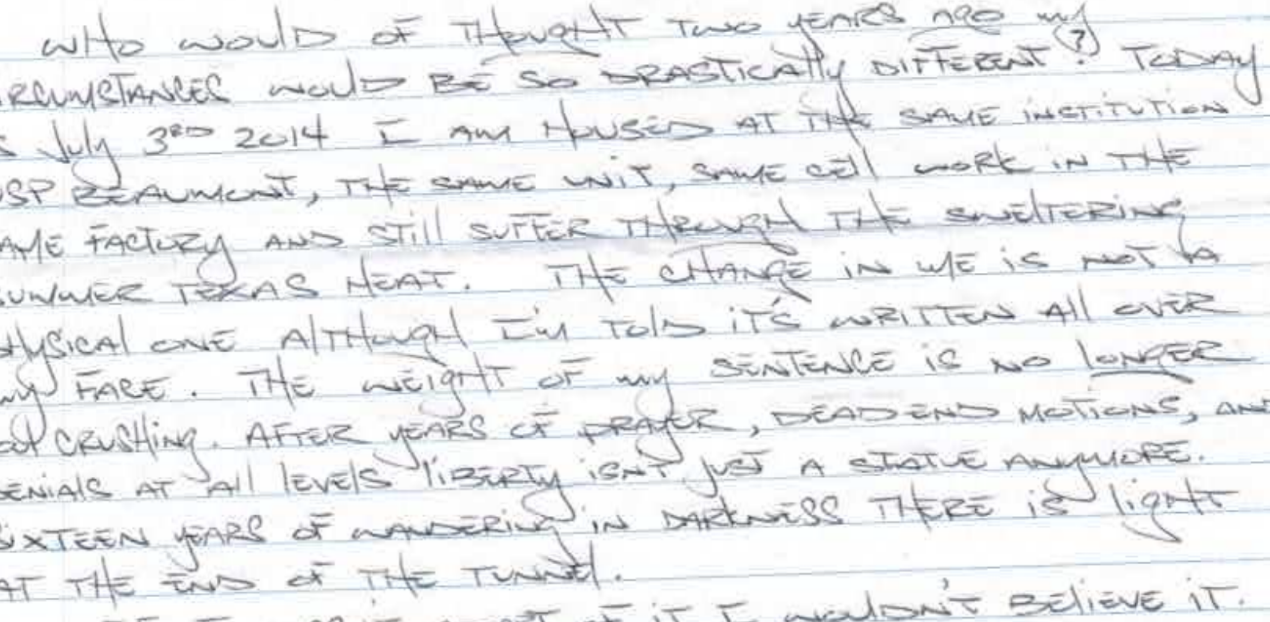 WHO WOULD OF THOUGHT TWO YEARS AGO MY
IRCUMSTANCES WOULD BE SO DRASTICALLY DIFFERENT(?)? TODAY
S July 3RD 2014 I AM HOUSED AT THE SAME INSTITUTION
USP BEAUMONT, THE SAME UNIT, SAME CELL WORK IN THE
AME FACTORY AND STILL SUFFER THROUGH THE SWELTERING
SUMMER TEXAS HEAT. THE CHANGE IN ME IS NOT A
PHYSICAL ONE ALTHOUGH I'M TOLD IT'S WRITTEN ALL OVER
MY FACE. THE WEIGHT OF MY SENTENCE IS NO LONGER
CRUSHING. AFTER YEARS OF PRAYER, DEAD END MOTIONS, AND
DENIALS AT ALL LEVELS LIBERTY ISN'T JUST A STATUE ANYMORE.
SIXTEEN YEARS OF WANDERING IN DARKNESS THERE IS LIGHT
AT THE END OF THE TUNNEL.
OF IT I WOULDN'T BELIEVE IT.